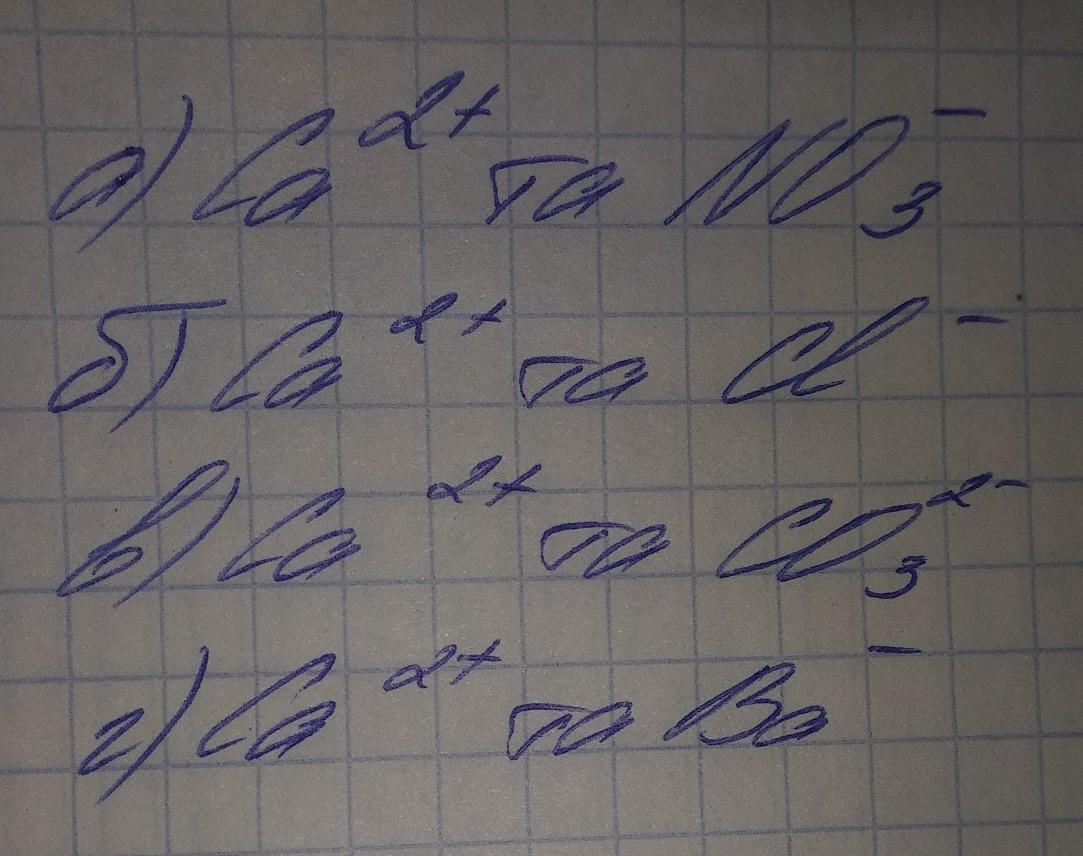 а) Ca²⁺ та NO₃⁻
б) Ca²⁺ та Cl⁻
в) Ca²⁺ та CO₃²⁻
г) Ca²⁺ та Ba⁻